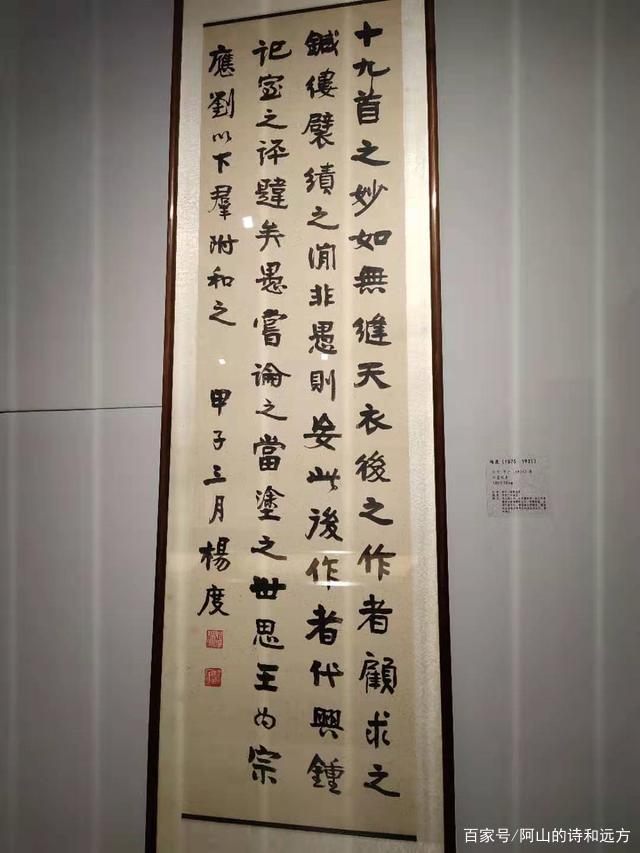 十九首之妙如無縫天衣後之作者顧求之
鍼縷襞績之閒非愚則妄此後作者代興鍾
記室之評韙矣愚嘗論之當塗之世思王为宗
應劉以下羣附和之 甲子三月楊度
杨度（1875-1931）
百家号/阿山的诗和远方